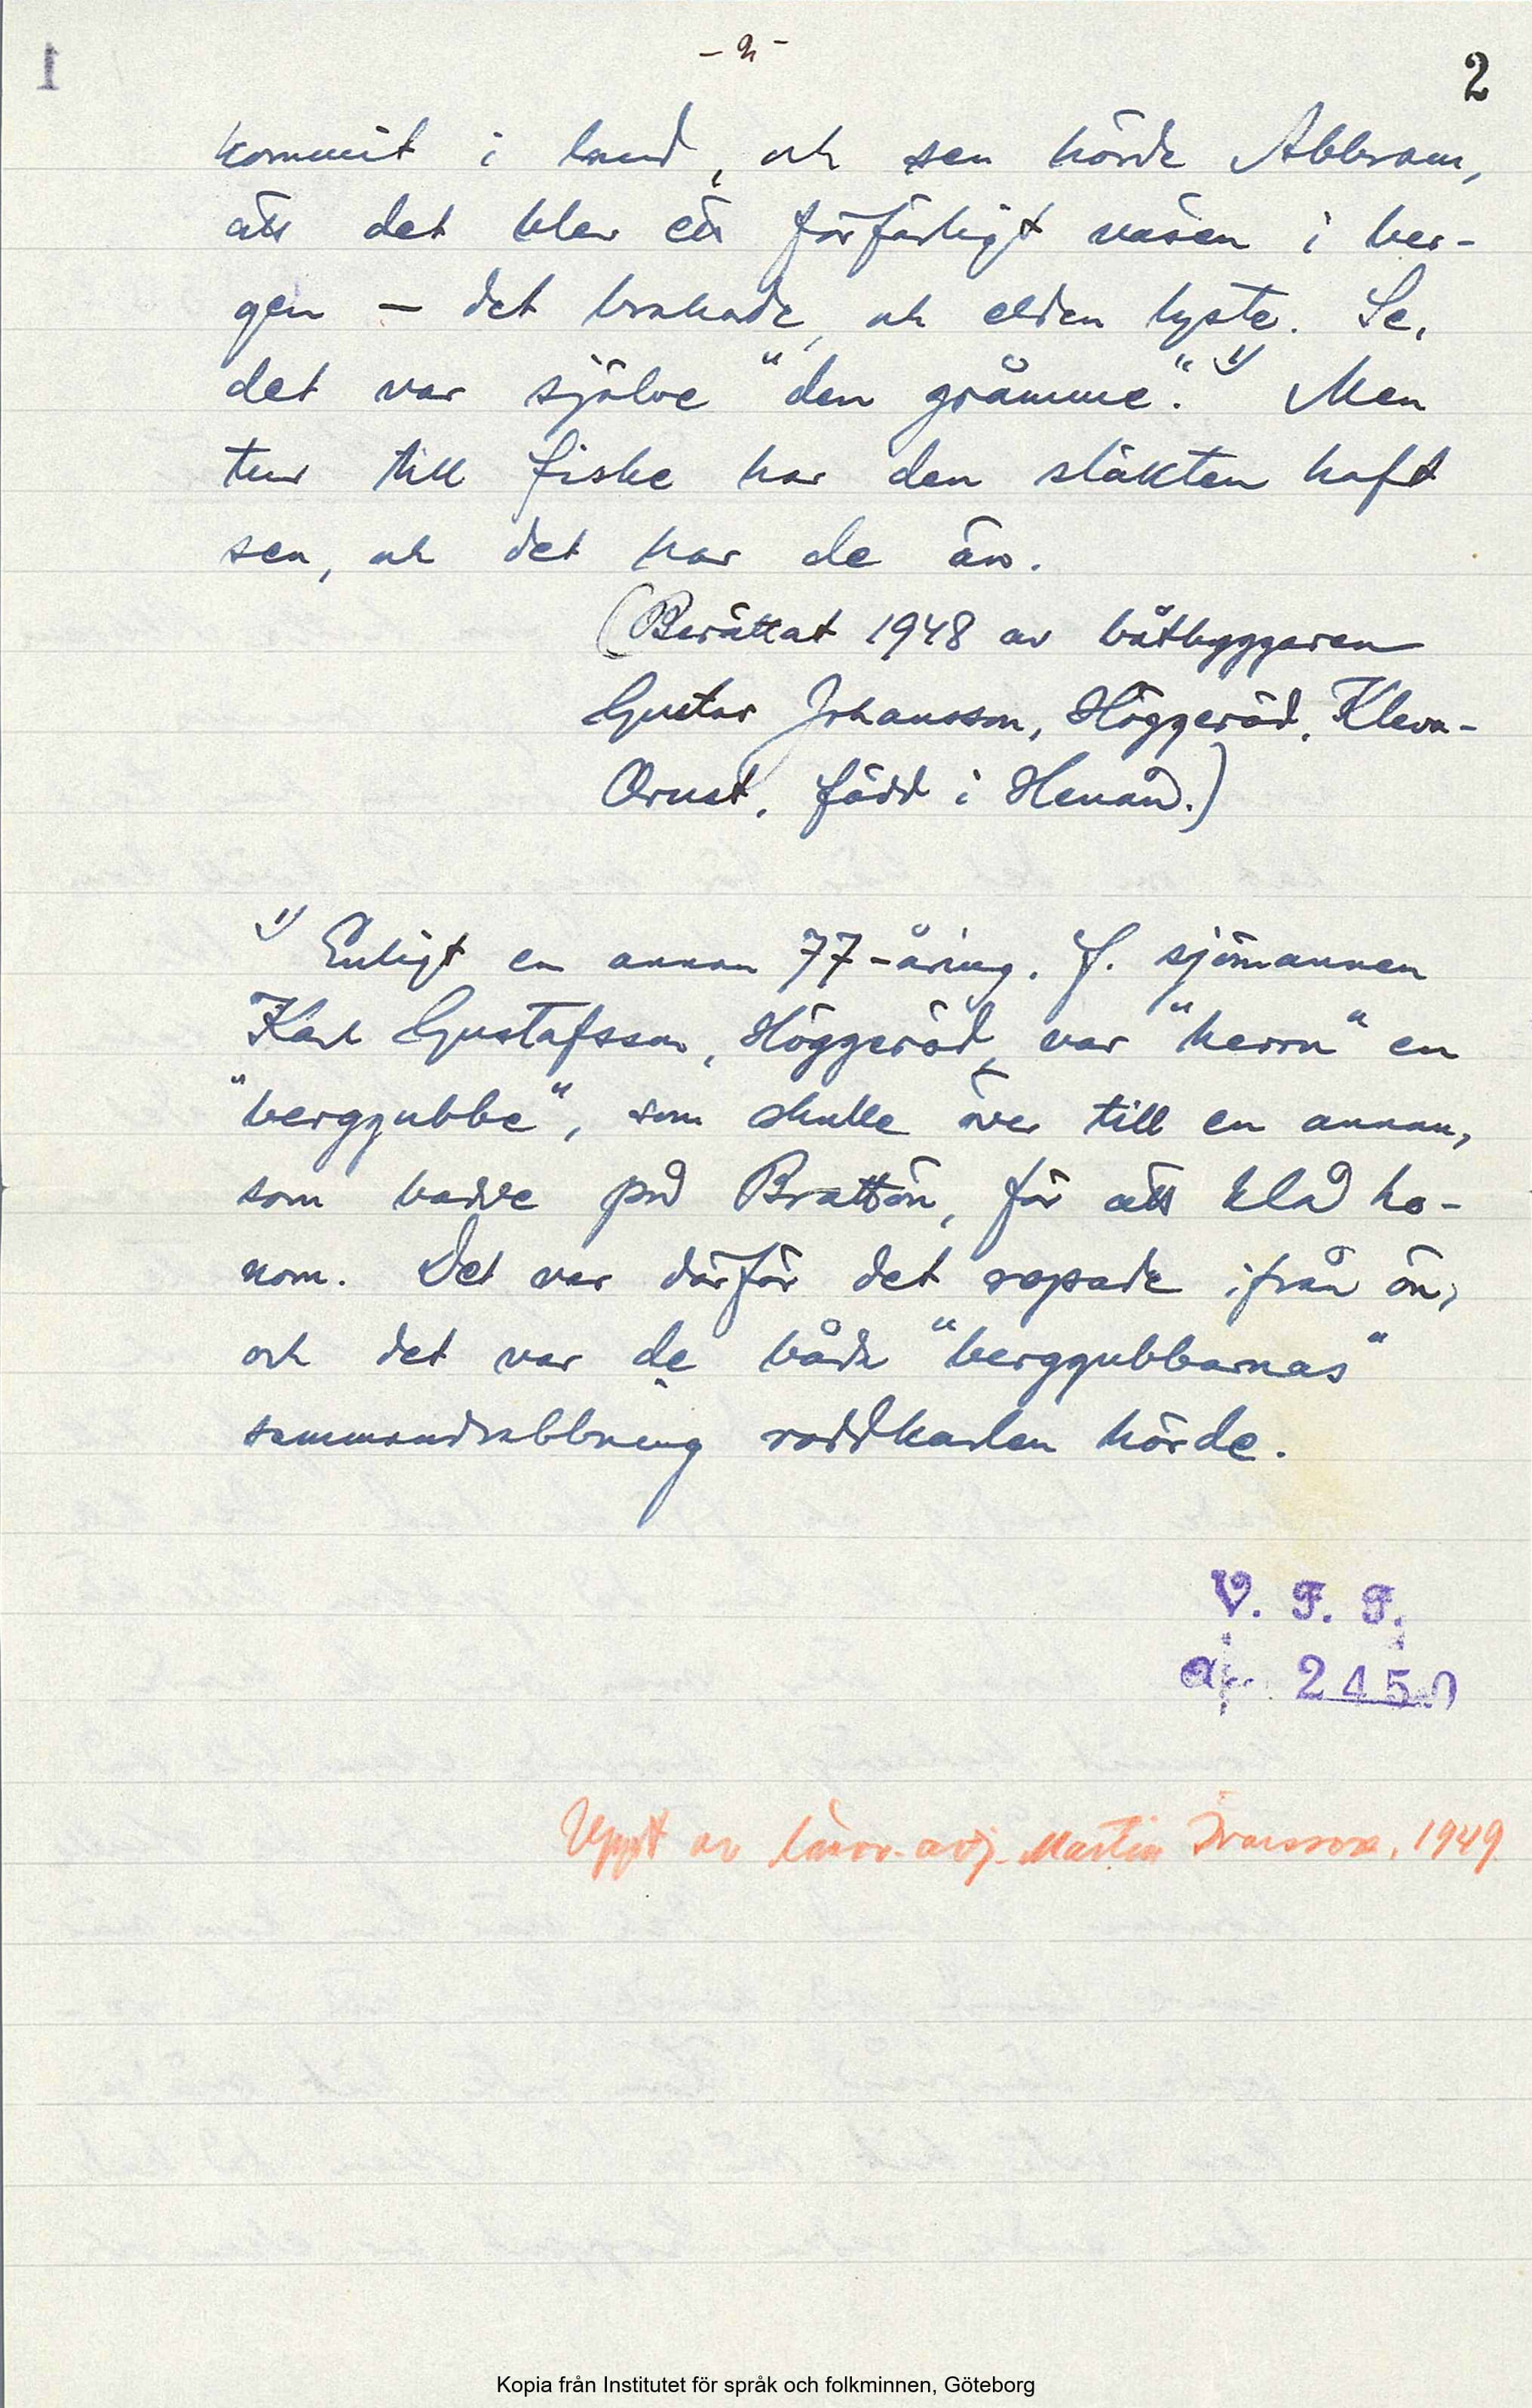 - 2 -
2
1
kommit i land, och sen hörde Abbram,
att det blev ett förfärligt väsen i ber-
gen — det brakade, och elden lyste. Se,
det var själve "den grämme". 1) Men
tur till fiske har den släkten haft
sen, och det har de än.
(Berättat 1948 av båtbyggaren
Gustav Johansson, Höggeröd, Kleva-
Orust, född i Henån.)
1) Enligt en annan 77-åring, f. sjömannen
Karl Gustafsson, Höggeröd, var "herrn" en
"berggubbe", som skulle över till en annan,
som bodde på Brattön, för att klå ho-
nom. Det var därför det ropade ifrån ön,
och det var de både "berggubbarnas"
sammandrabbning roddkarlen hörde.
V. F. F.
2450
Uppt av lärov. adj. Martin Ivarsson, 1949
Kopia från Institutet för språk och folkminnen, Göteborg